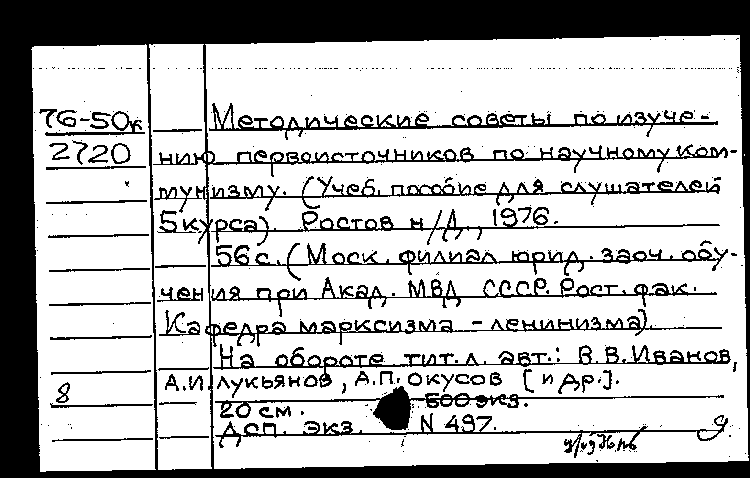 76-50к Методические советы по изуче-
2720 нию первоисточников по научному ком-
мунизму. (Учеб. пособие для слушателей
5 курса). Ростов н/Д., 1976.
56 с. (Моск. филиал юрид. заоч. обу-
чения при Акад. МВД СССР. Рост. фак.
Кафедра марксизма-ленинизма).
На обороте тит. л. авт.: В.В. Иванов,
8 А.И. Лукьянов, А.П. Окусов [и др.].
20 см. 500 экз.
Дсп. экз. N 497.